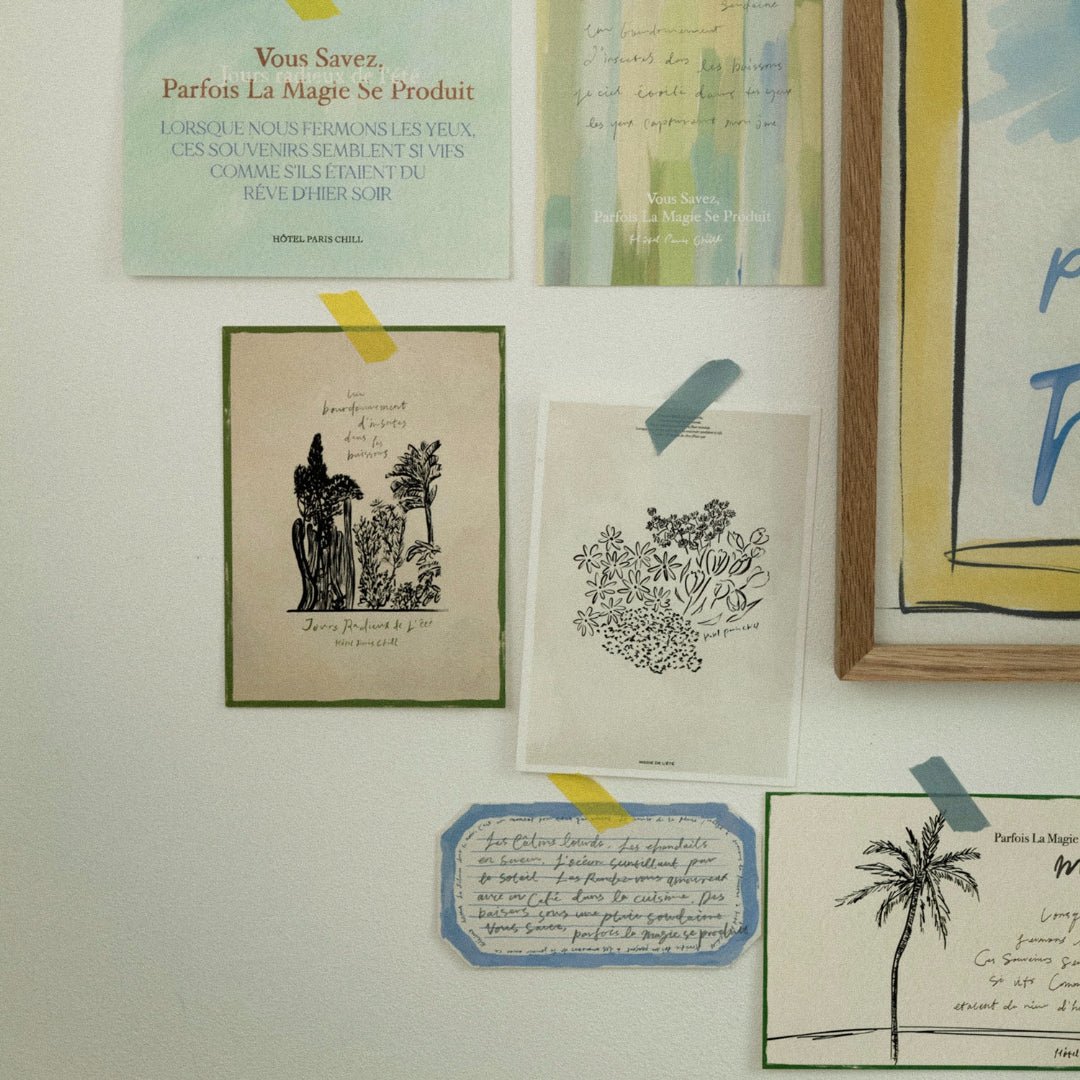 Vous Savez,
Jours radieux de l'été
Parfois La Magie Se Produit
LORSQUE NOUS FERMONS LES YEUX,
CES SOUVENIRS SEMBLENT SI VIFS
COMME S'ILS ÉTAIENT DU
RÊVE D'HIER SOIR
HÔTEL PARIS CHILL
Soudaine
Un bourdonnement
D'insectes dans les buissons
les yeux capturaient mon âme
Vous Savez,
Parfois La Magie Se Produit
Hôtel Paris Chill
Un
bourdonnement
d'insectes
dans les
buissons
Jours Radieux de L'été
Hôtel Paris Chill
Hôtel Paris Chill
MAGIE DE L'ÉTÉ
Les Câlins lourds. Les chandails
en sueur. L'océan scintillant par
le soleil. Les Rendez-vous amoureux
avec un Café dans la cuisine. Des
baisers sous une pluie soudaine
Vous Savez, parfois la magie se produit
Parfois La Magie
M
Lorsq
fermons l
Ces Souvenirs Se
Si vifs Comm
étaient du rêve d'h
Hôtel
P